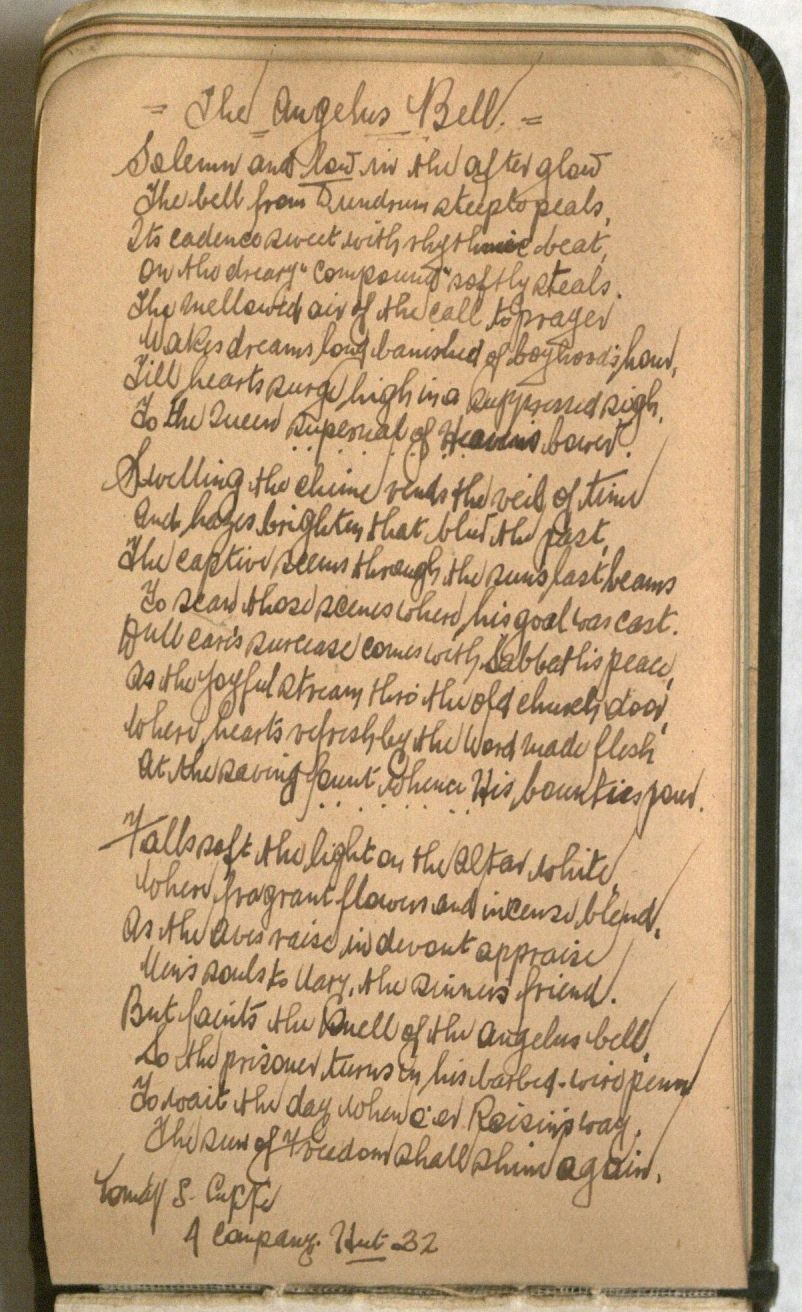 = The Angelus Bell. =
Solemn and low in the after glow
The bell from Dundrum steeple peals,
Its cadence sweet with rhythmic beat,
On the dreary "compound" softly steals.
The mellowed air of the call to prayer
Wakes dreams long banished of boyhood's hour,
Till hearts surge high in a suppressed sigh,
To the Queen supernal of Heavens bower.
Swelling the chime rends the veil of time
And hazes brighten that blur the past,
The captive seems through the suns last beams
To scan those scenes where his goal was cast.
Dull care's surcease comes with Sabbath's peace,
As the joyful stream thro' the old church door,
Where hearts refresh by the Word made flesh
At the saving fount whence His bounties pour.
Falls soft the light on the altar white
Where fragrant flowers and incense blend,
As the aves raise in devout appraise
Men's souls to Mary, the sinners friend.
But faints the knell of the angelus bell,
So the prisoner turns in his barbed-wire penn
To wait the day when o'er Roisin's way,
The sun of Freedom shall shine again.
Tomás S. Cuffe
A Company. Hut 32